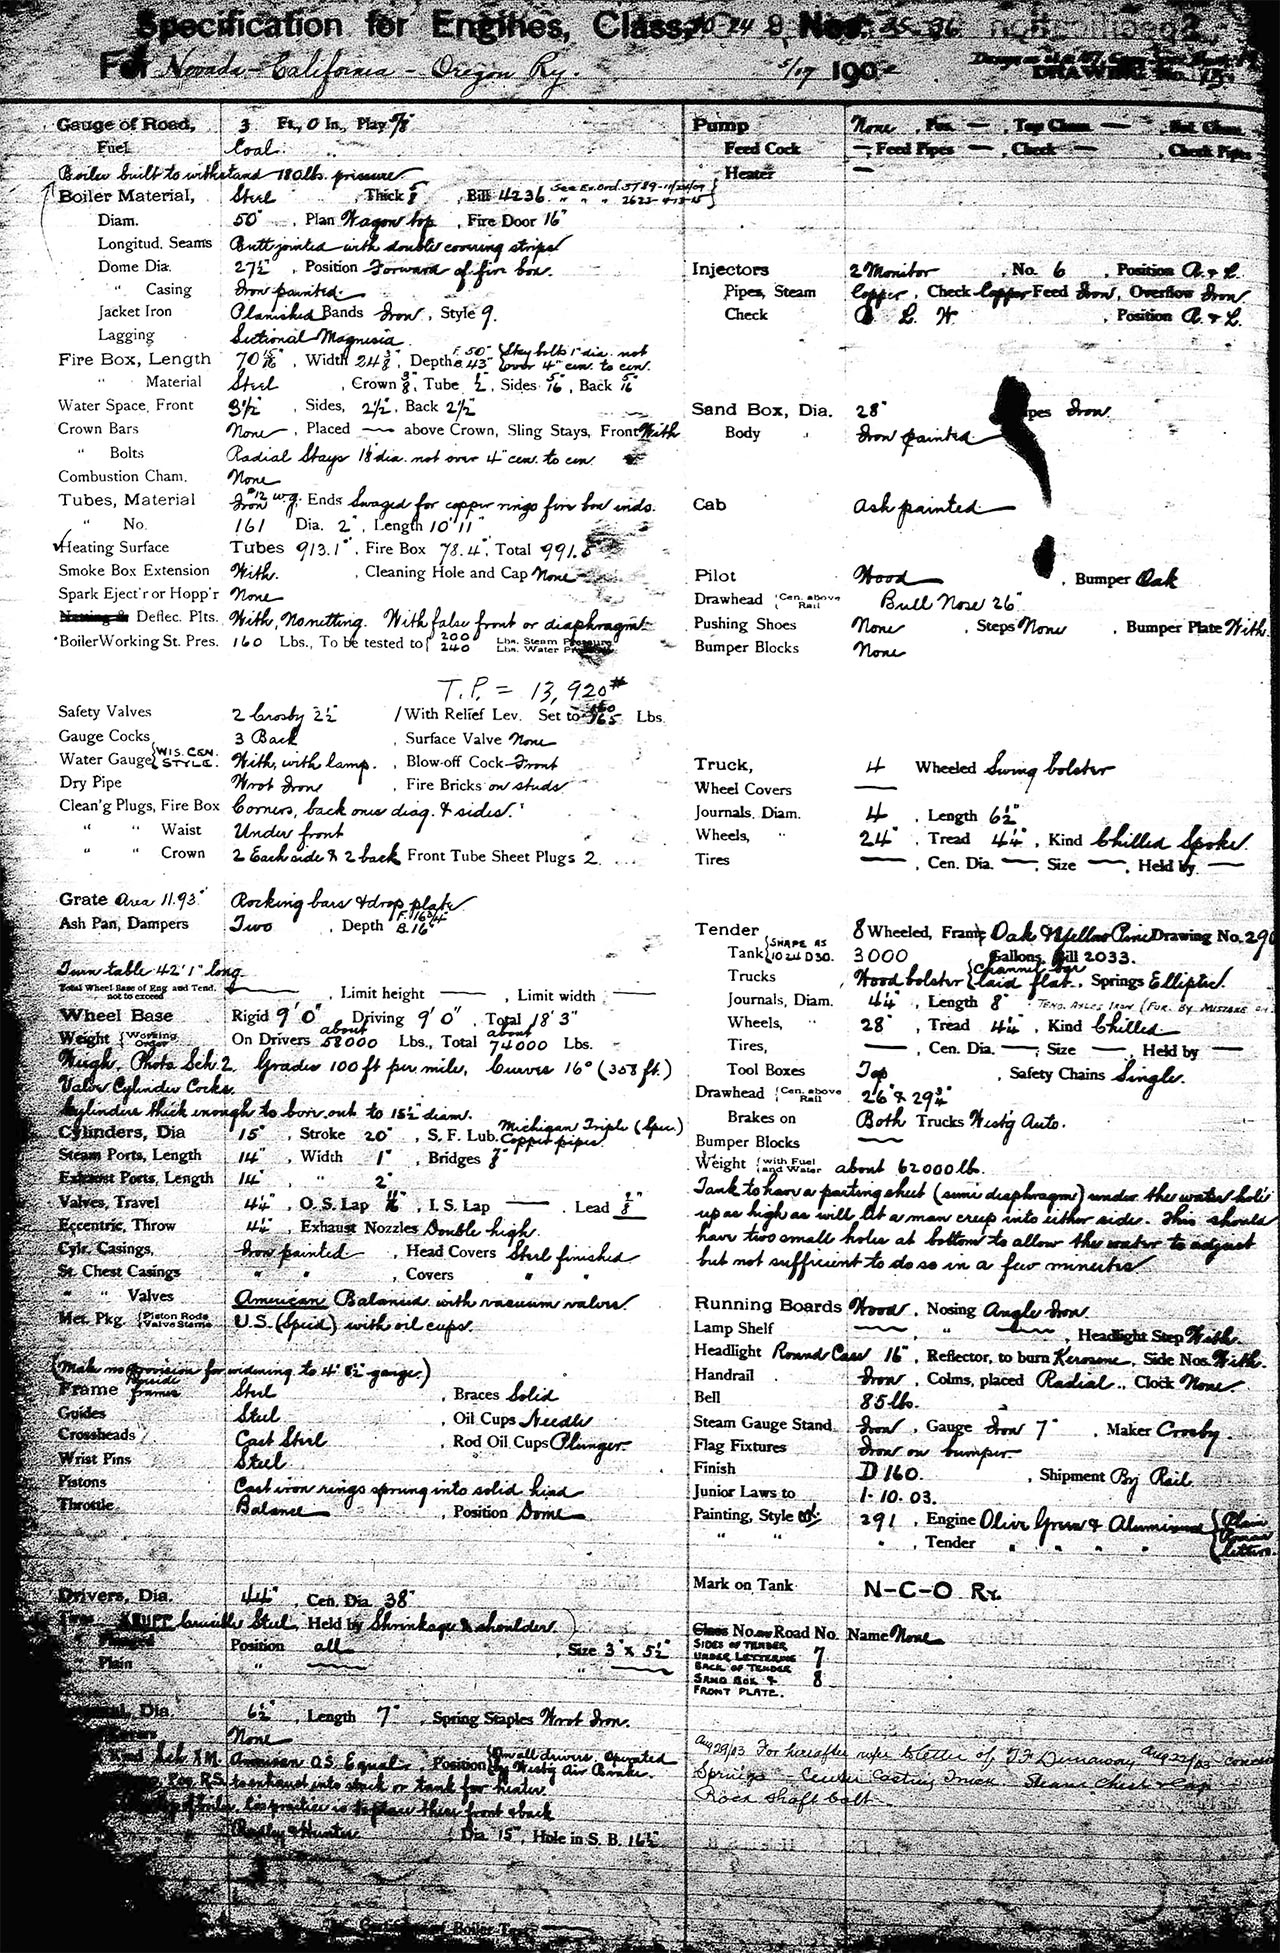 Specification for Engines, Class, 10 24 D, Nos. 35-36
For Nevada-California-Oregon Ry. 5/07 190
DRAWING No.
Gauge of Road, 3 Ft., 0 In., Play 5/8"
Fuel Coal
Boiler built to withstand 180 lbs. pressure
Boiler Material, Steel, Thick 5/8, Bill 4236. See Ex. Ord. 5789-11/26/09
" " " 2623-4-13-15
Diam. 50", Plan Wagon top, Fire Door 16"
Longitud. Seams Butt jointed with double covering strips
Dome Dia. 27½", Position Forward of fire box.
" Casing Iron painted.
Jacket Iron Planished Bands Iron, Style 9.
Lagging Sectional Magnesia.
Fire Box, Length 70 15/16", Width 24 3/8", Depth F. 50" B. 43" {Stay bolts 1" dia. not over 4" cen. to cen.
" Material Steel, Crown 3/8", Tube ½", Sides 5/16", Back 5/16"
Water Space, Front 3½", Sides, 2½", Back 2½"
Crown Bars None, Placed — above Crown, Sling Stays, Front With
" Bolts Radial Stays 1⅛ dia. not over 4" cen. to cen.
Combustion Cham. None
Tubes, Material Iron #12 w.g. Ends Swaged for copper rings fire box ends.
" No. 161 Dia. 2", Length 10' 11"
Heating Surface Tubes 913.1", Fire Box 78.4", Total 991.5
Smoke Box Extension With. , Cleaning Hole and Cap None
Spark Eject'r or Hopp'r None
Netting & Deflec. Plts. With, No netting. With false front or diaphragm.
Boiler Working St. Pres. 160 Lbs., To be tested to { 200 Lbs. Steam Pressure
240 Lbs. Water Pressure
T.P. = 13,920#
Safety Valves 2 Crosby 2½ 1 With Relief Lev. Set to 160 165 Lbs.
Gauge Cocks 3 Back, Surface Valve None
Water Gauge {WIS. CEN. STYLE. With, with lamp. , Blow-off Cock Front
Dry Pipe Wrot Iron, Fire Bricks on studs
Clean'g Plugs, Fire Box Corners, back ones diag. & sides.
" " Waist Under front
" " Crown 2 Each side & 2 back Front Tube Sheet Plugs 2
Grate Area 11.93" Rocking bars & drop plate
Ash Pan, Dampers Two, Depth F. 16¾" B. 16"
Turn table 42' 1" long
Total Wheel Base of Eng. and Tend. not to exceed —, Limit height —, Limit width —
Wheel Base Rigid 9' 0" Driving 9' 0", Total 18' 3"
Weight {Working Order On Drivers about 58000 Lbs., Total about 74000 Lbs.
Weigh. Photo Sch. 2. Grades 100 ft per mile, Curves 16° (358 ft.)
Valve Cylinder Cocks.
Cylinders thick enough to bore out to 15½" diam.
Cylinders, Dia 15", Stroke 20", S. F. Lub. Michigan Triple (Spec.) Copper pipes
Steam Ports, Length 14", Width 1", Bridges 7/8"
Exhaust Ports, Length 14", " 2"
Valves, Travel 4¼", O. S. Lap 11/16", I. S. Lap — . Lead
Eccentric, Throw 4¼", Exhaust Nozzles Double high.
Cylr. Casings, Iron painted, Head Covers Steel finished
St. Chest Casings " " , Covers " "
" " Valves American Balanced with vacuum valves
Met. Pkg. {Piston Rods Valve Stems U.S. (Spec'd) with oil cups.
(Make no provision for widening to 4' 8½" gauge.)
Frame Inside frames Steel, Braces Solid
Guides Steel, Oil Cups Needle
Crossheads Cast Steel, Rod Oil Cups Plunger
Wrist Pins Steel
Pistons Cast iron rings sprung into solid head
Throttle Balance, Position Dome
Drivers, Dia. 44", Cen. Dia. 38"
Tires KRUPP Crucible Steel, Held by Shrinkage & shoulder
" Flanged Position all, Size 3" x 5½"
" Plain " — " —
Dia. 6½", Length 7", Spring Staples Wrot Iron.
None
American O.S. Equal., Position {On all drivers. Operated by Westg Air Brake.
R.S. to exhaust into stack or tank for heater.
practice is to place these front & back
Radley & Hunter {Dia. 15", Hole in S. B. 16½"
Boiler Test
Pump None, Pos. —, Top Cham. —, Bot. Cham.
Feed Cock —, Feed Pipes —, Check —, Check Pipes
Heater —
Injectors 2 Monitor, No. 6, Position R. & L.
Pipes, Steam Copper, Check Copper Feed Iron, Overflow Iron
Check B. L. W. , Position R. & L.
Sand Box, Dia. 28" Pipes Iron
Body Iron painted
Cab Ash painted
Pilot Wood, Bumper Oak
Drawhead {Cen. above Rail Bull Nose 26"
Pushing Shoes None, Steps None, Bumper Plate With
Bumper Blocks None
Truck, 4 Wheeled Swing bolster
Wheel Covers —
Journals, Diam. 4", Length 6½"
Wheels, " 24", Tread 4¼", Kind Chilled Spoke
Tires —, Cen. Dia. —; Size —, Held by —
Tender 8 Wheeled, Frame Oak & Yellow Pine Drawing No. 290
Tank {SHAPE AS 10 24 D 30. 3000 Gallons, Bill 2033.
Trucks Wood bolster {Channel bar laid flat, Springs Elliptic
Journals, Diam. 4¼", Length 8" TEND. AXLES IRON (FUR. BY MISTAKE ON
Wheels, " 28", Tread 4¼", Kind Chilled
Tires, —, Cen. Dia. —; Size —, Held by —
Tool Boxes Top, Safety Chains Single.
Drawhead {Cen. above Rail 26" & 29¾"
Brakes on Both Trucks West'g Auto.
Bumper Blocks —
Weight {with Fuel and Water about 62000 lb.
Tank to have a parting sheet (semi diaphragm) under the water hole
up as high as will let a man creep into either side. This should
have two small holes at bottom to allow the water to adjust
but not sufficient to do so in a few minutes
Running Boards Wood, Nosing Angle Iron
Lamp Shelf —, " —, Headlight Step With.
Headlight Round Case 16", Reflector, to burn Kerosene, Side Nos. With.
Handrail Iron, Colms, placed Radial., Clock None
Bell 85 lbs.
Steam Gauge Stand Iron, Gauge Iron 7", Maker Crosby.
Flag Fixtures Iron on bumper
Finish D 160. , Shipment By Rail
Junior Laws to 1-10-03.
Painting, Style 291, Engine Olive Green & Aluminum {Plain Roman letters.
" " " , Tender " " " "
Mark on Tank N-C-O Ry.
Class No. or Road No. Name None
SIDES OF TENDER
UNDER LETTERING 7
BACK OF TENDER
SAND BOX & 8
FRONT PLATE.
Aug 29/03 For hereafter refer to letter of T. F. Dunaway Aug 22/03
Springs - Center Casting Truck - Steam Chest & Cap
Rock Shaft bolt